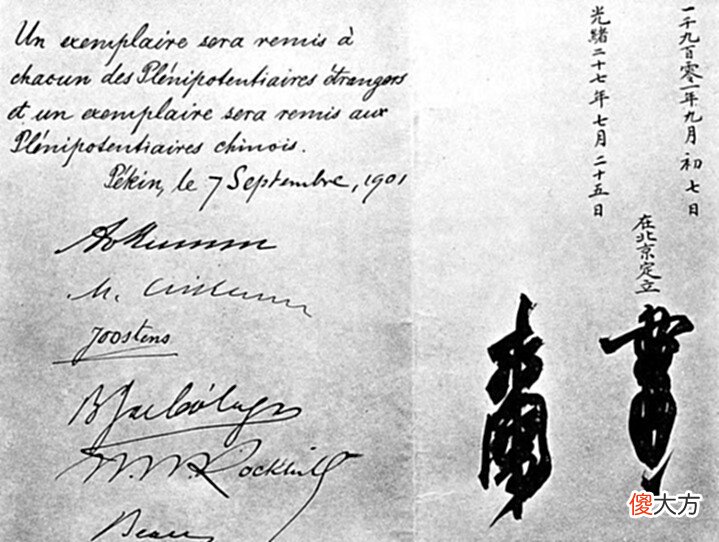 Un exemplaire sera remis à
chacun des Plénipotentiaires étrangers
et un exemplaire sera remis aux
Plénipotentiaires chinois.
Pékin, le 7 Septembre, 1901
Joostens
W. W. Rockhill
Beau
一千九百零一年九月初七日
光緒二十七年七月二十五日
在北京定立
傻大方